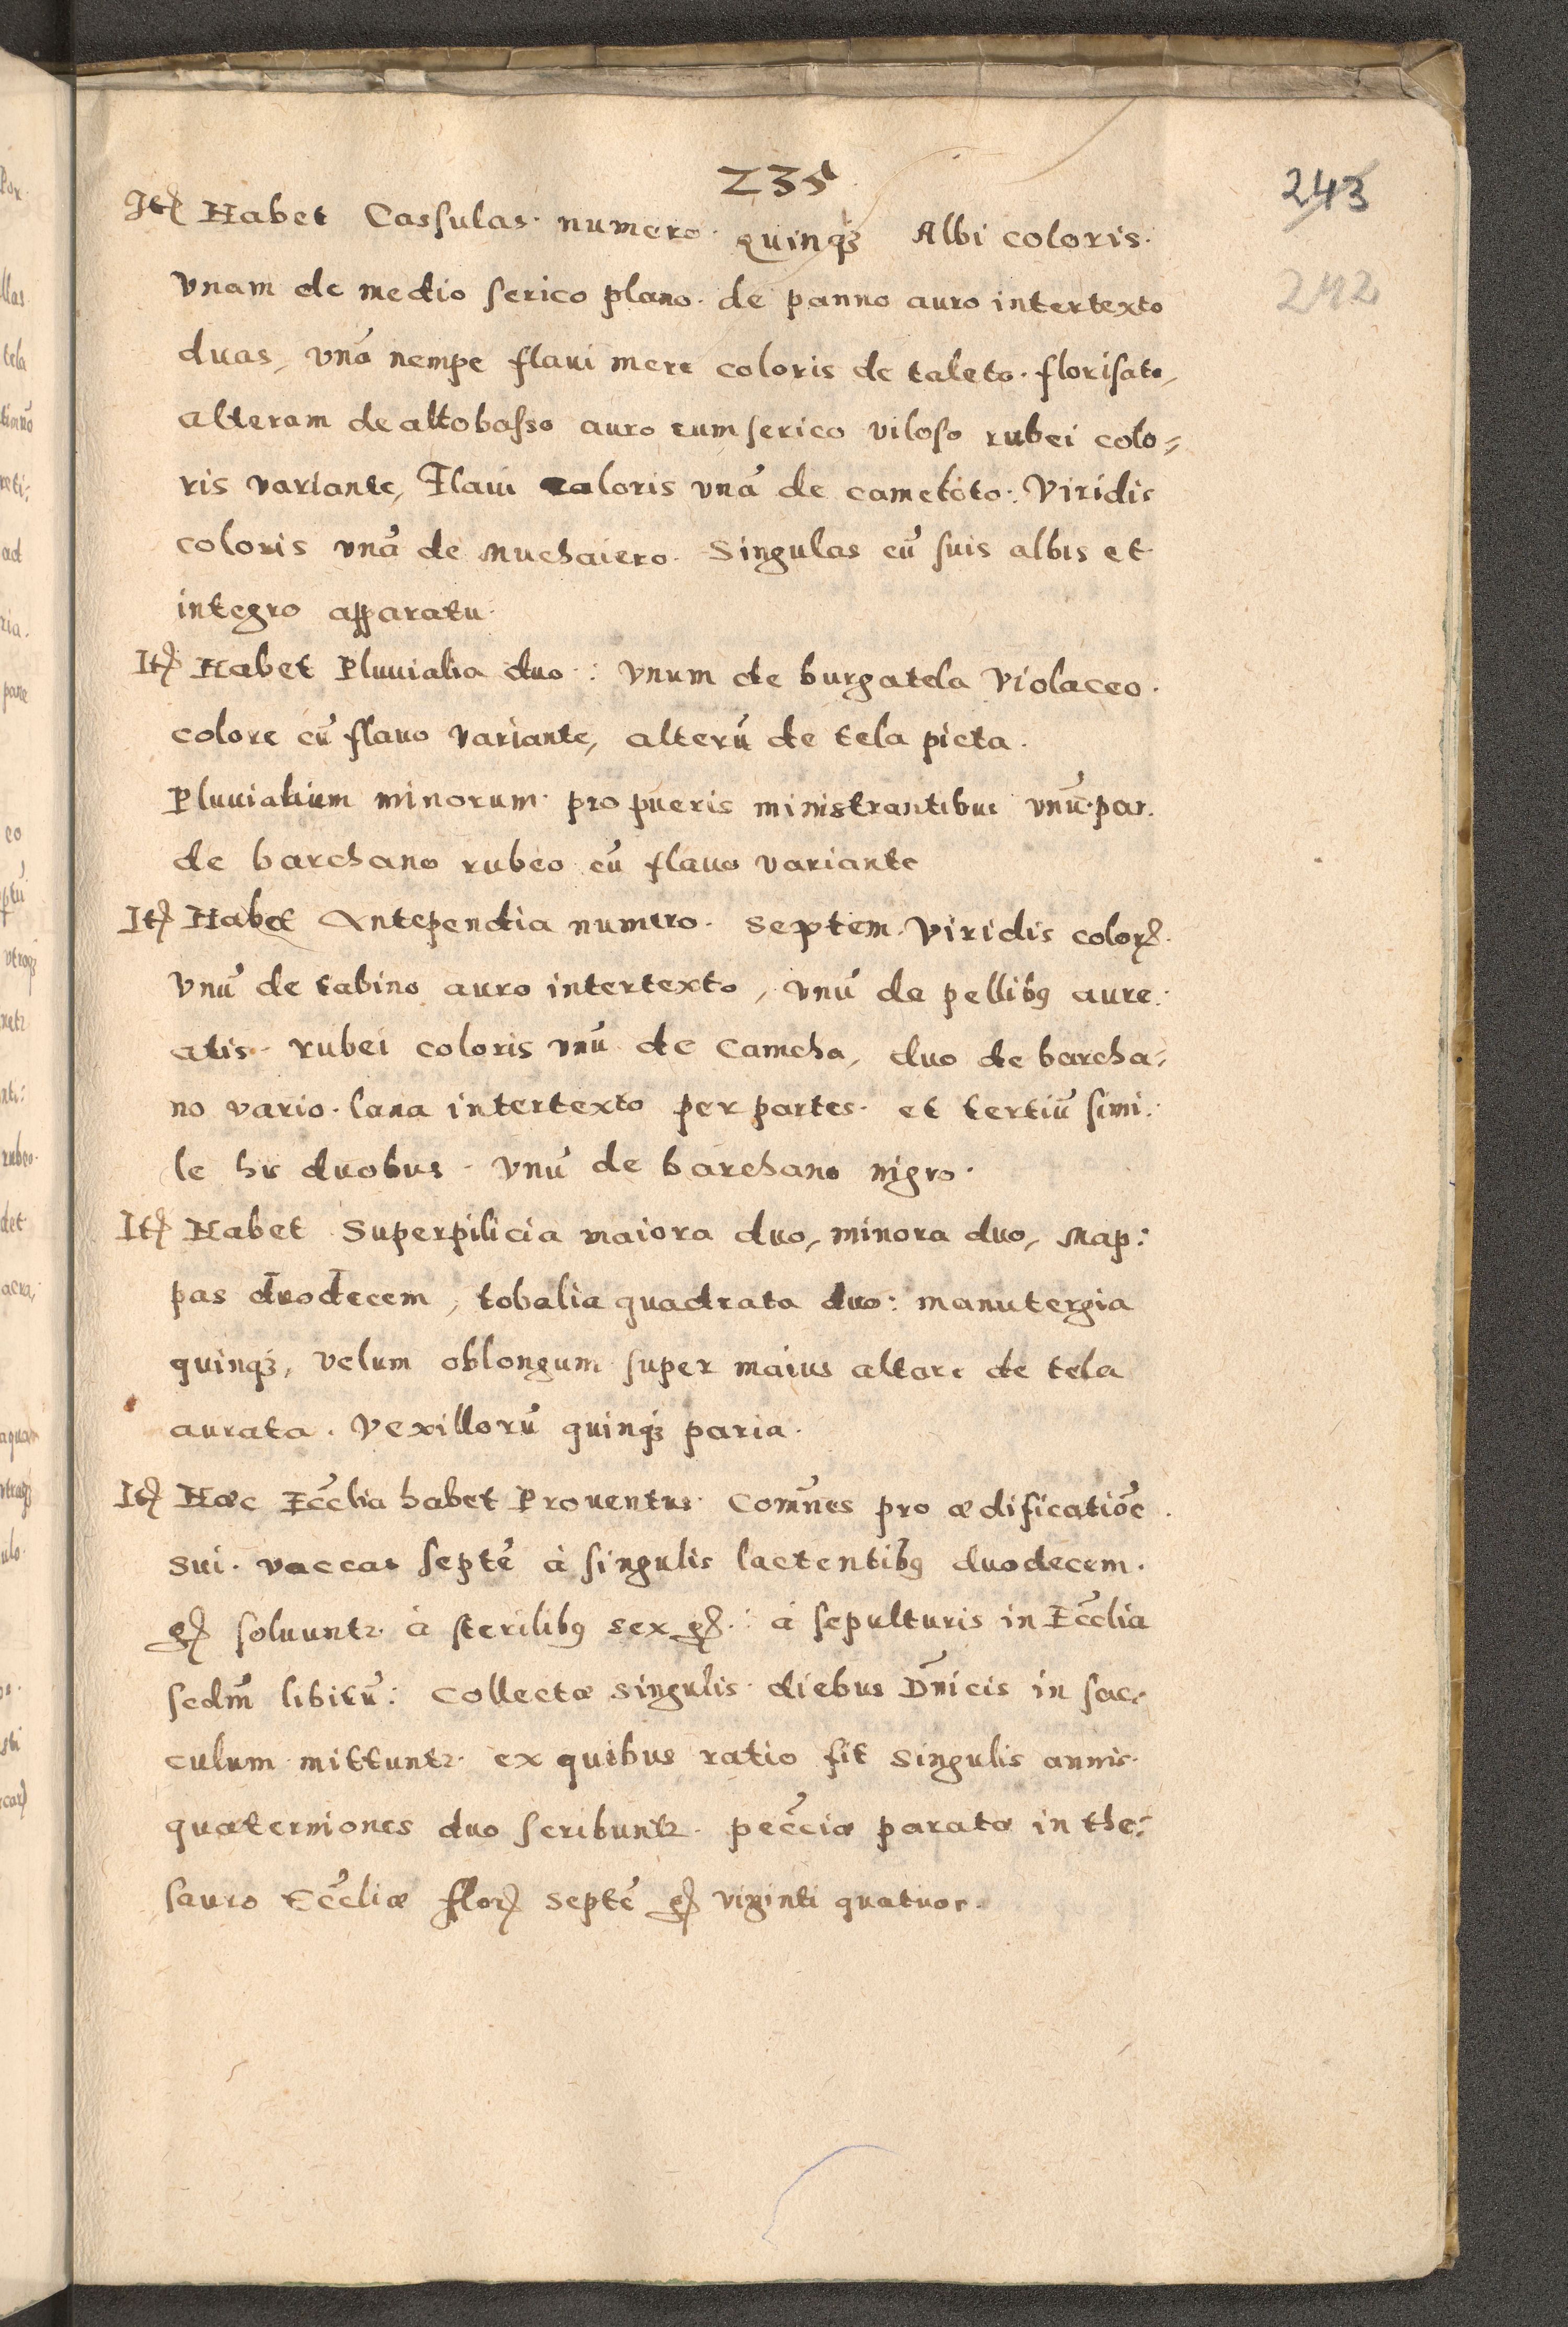 235
243
242
Itẽ Habet Cassulas. numero. quinqꝫ Albi coloris.
vnam de medio serico plano. de panno auro intertexto
duas, vnã nempe flaui mere coloris de taleto. florisato,
alteram de altobasso auro cum serico viloso rubei colo=
ris variante, Flaui coloris vnã de cameloto: Viridis
coloris vnã de Muchaiero. Singulas cũ suis albis et
integro apparatu.
Itẽ Habet Pluuialia duo: vnum de burgatela Violaceo.
colore cũ flauo variante, alterũ de tela picta.
Pluuialium minorum pro pueris ministrantibus vnũ par.
de barchano rubeo cũ flauo variante
Itẽ Habet Antependia numero. septem. Viridis colorꝭ.
vnũ de tabino auro intertexto, vnũ de pellibꝯ aure:
atis. rubei coloris vnũ de Camcha, duo de barcha=
no vario. lana intertexto per partes. et tertiũ simi:
le his duobus. Vnũ de barchano nigro.
Itẽ Habet Superpilicia maiora duo, minora duo, Map:
pas duodecem, tobalia quadrata duo: manutergia
quinqꝫ, velum oblongum super maius altare de tela
aurata. Vexillorũ quinqꝫ paria.
Itẽ Haec Ecc̃lia habet Prouentus. Com̃nes pro ædificatiõe.
sui. vaccas septẽ à singulis lactentibꝯ duodecem.
gꝭ soluuntꝛ. à sterilibꝯ sex gꝭ.: à sepulturis in Ecc̃lia
secdm̃ libitũ: Collectæ singulis diebus Dñicis in sac=
culum mittuntꝛ. ex quibus ratio fit singulis annis.
quaterniones duo scribuntꝛ. pecc̃iæ paratæ in the:
sauro Ecc̃liæ florꝭ septẽ gꝭ viginti quatuor.